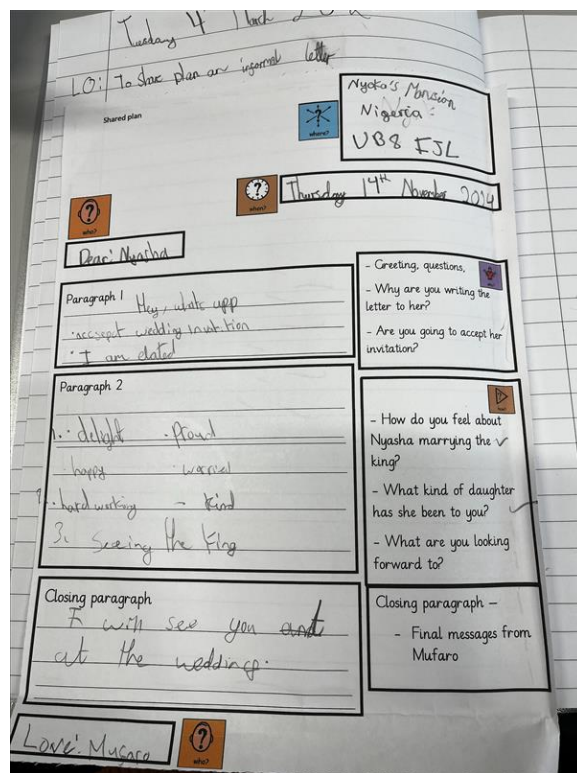 Tuesday 4 March
LO: To share plan an informal letter
Shared plan
where?
Nyoka's Mansion
Nigeria
UB8 FJL
when?
Thursday 14th November 2024
who?
Dear: Nyasha
Paragraph 1 Hey, whats upp
· accsepct wedding invitition
· I am elated
- Greeting, questions,
- Why are you writing the
letter to her?
- Are you going to accept her
invitation?
Paragraph 2
1. · delight · Proud
happy · worried
· hard working - kind
3. seeing the King
- How do you feel about
Nyasha marrying the
king?
- What kind of daughter
has she been to you?
- What are you looking
forward to?
Closing paragraph
I will see you
at the wedding.
Closing paragraph –
- Final messages from
Mufaro
Love: Mufaro
who?